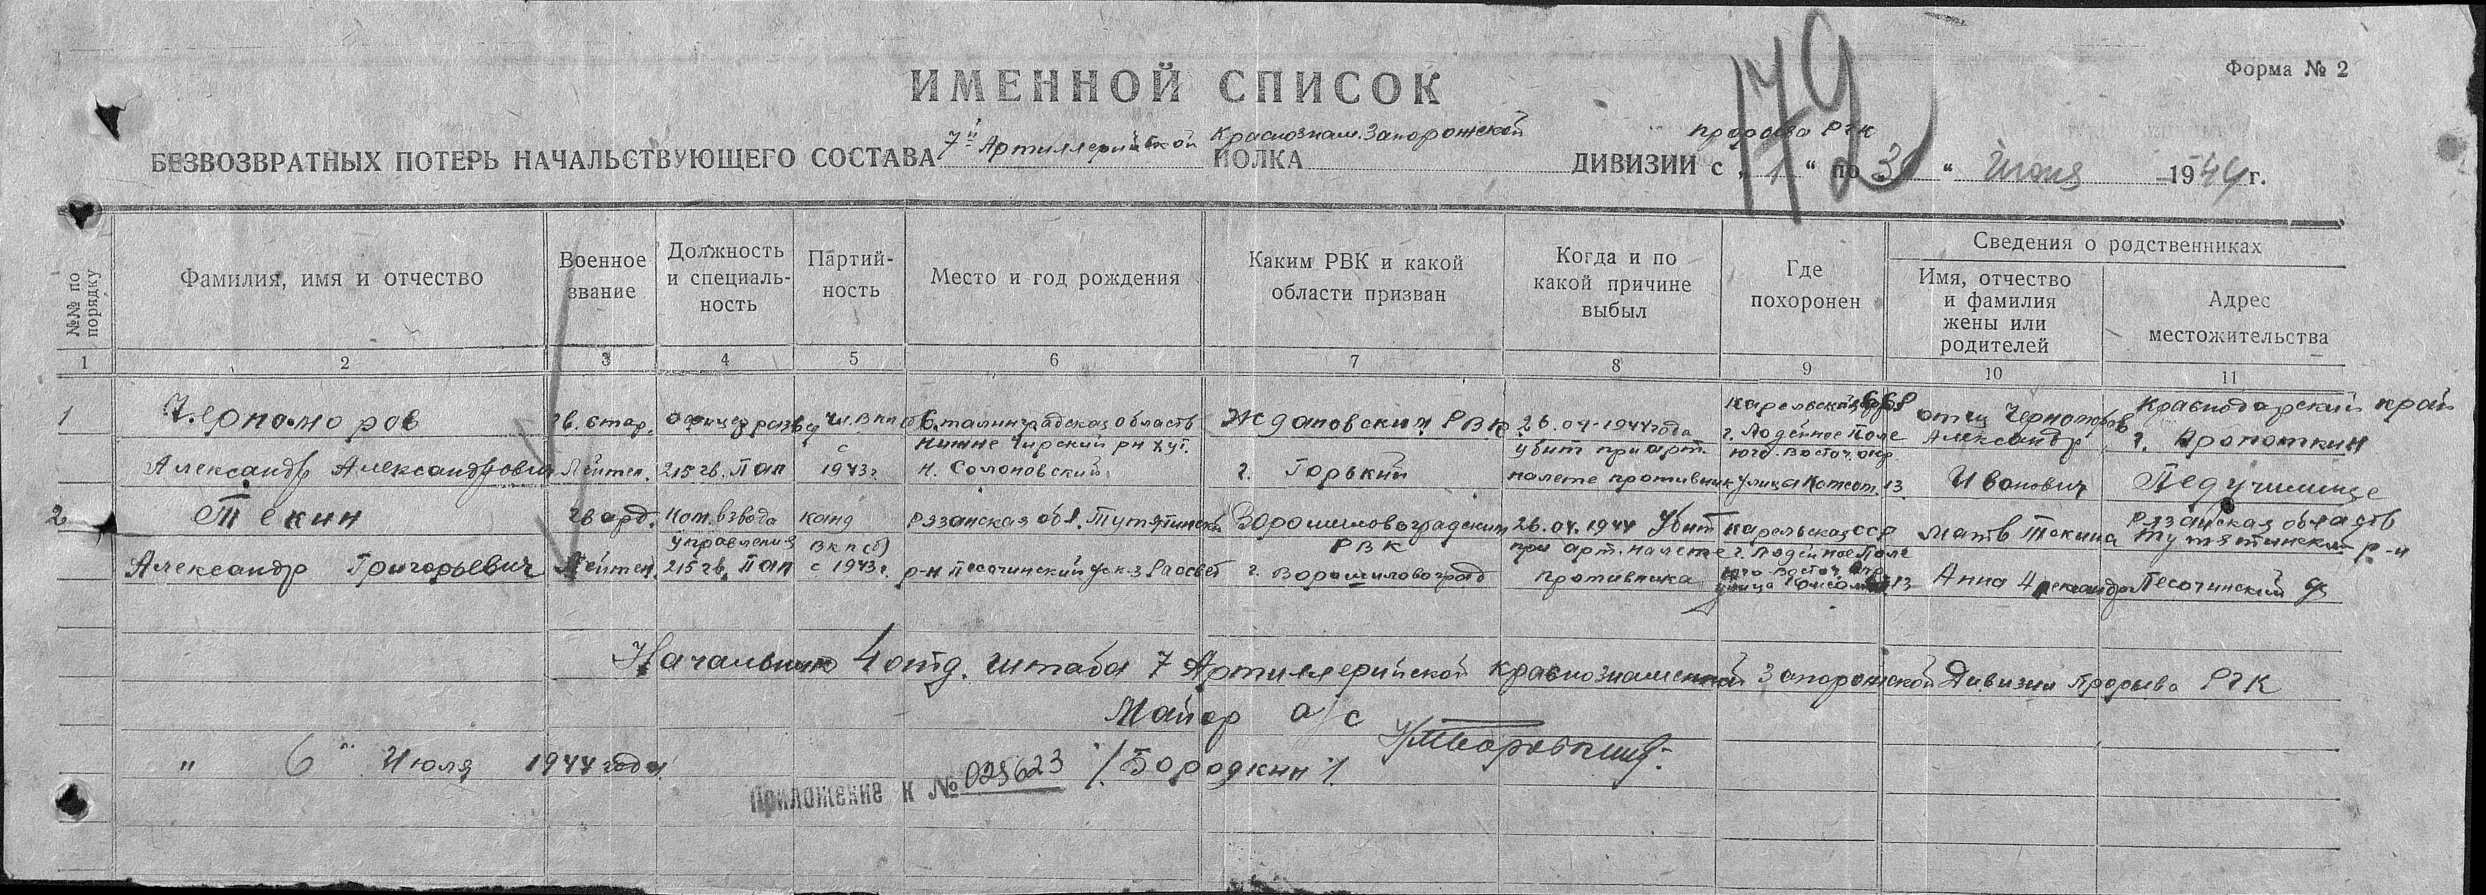 179
Форма № 2
ИМЕННОЙ СПИСОК
БЕЗВОЗВРАТНЫХ ПОТЕРЬ НАЧАЛЬСТВУЮЩЕГО СОСТАВА 7й Артиллерийской Краснознам. Запорожской ПОЛКА ДИВИЗИИ прорыва РГК с „ 1 “ по 30 “ Июня 1944 г.
№№ по порядку
Фамилия, имя и отчество
Военное звание
Должность и специаль-ность
Партий-ность
Место и год рождения
Каким РВК и какой области призван
Когда и по какой причине выбыл
Где похоронен
Сведения о родственниках
Имя, отчество и фамилия жены или родителей
Адрес местожительства
1 2 3 4 5 6 7 8 9 10 11
1
Черноморов
Александр Александрович
Гв. стар.
Лейтен.
Офицер развед
215 гв. Пап
Чл. ВКП(б)
с
1943 г.
Сталинградская область
Нижне Чирский рн хут.
Н. Солоновский
Ждановским РВК
г. Горький
26.04.1944 года
убит при арт.
налете противник
Карельская ССР
г. Лодейное Поле
юго-восточ. окр.
улица Комсом. 13
отец Черноморов
Александр
Иванович
Краснодарский край
г. Кропоткин
Педучилище
2
Текин
Александр Григорьевич
Гвард.
Лейтен.
Ком. взвода
управления
215 гв. Пап
канд
ВКП(б)
с 1943 г.
Рязанская обл. Тутятинский
р-н Песочинский к-з Рассвет
Ворошиловоградским
РВК
г. Ворошиловоград
26.04.1944 Убит
при арт. налете
противника
Карельская ССР
г. Лодейное Поле
юго-восточ. окр.
улица 13
Мать Текина
Анна Александр
Рязанская область
Тутятинский р-н
Песочинский
Начальник 4 отд. штаба 7 Артиллерийской Краснознаменной Запорожской Дивизии Прорыва РГК
Майор а/с
/Бородкин/
„ 6 “ Июля 1944 года
Приложение к № 025623